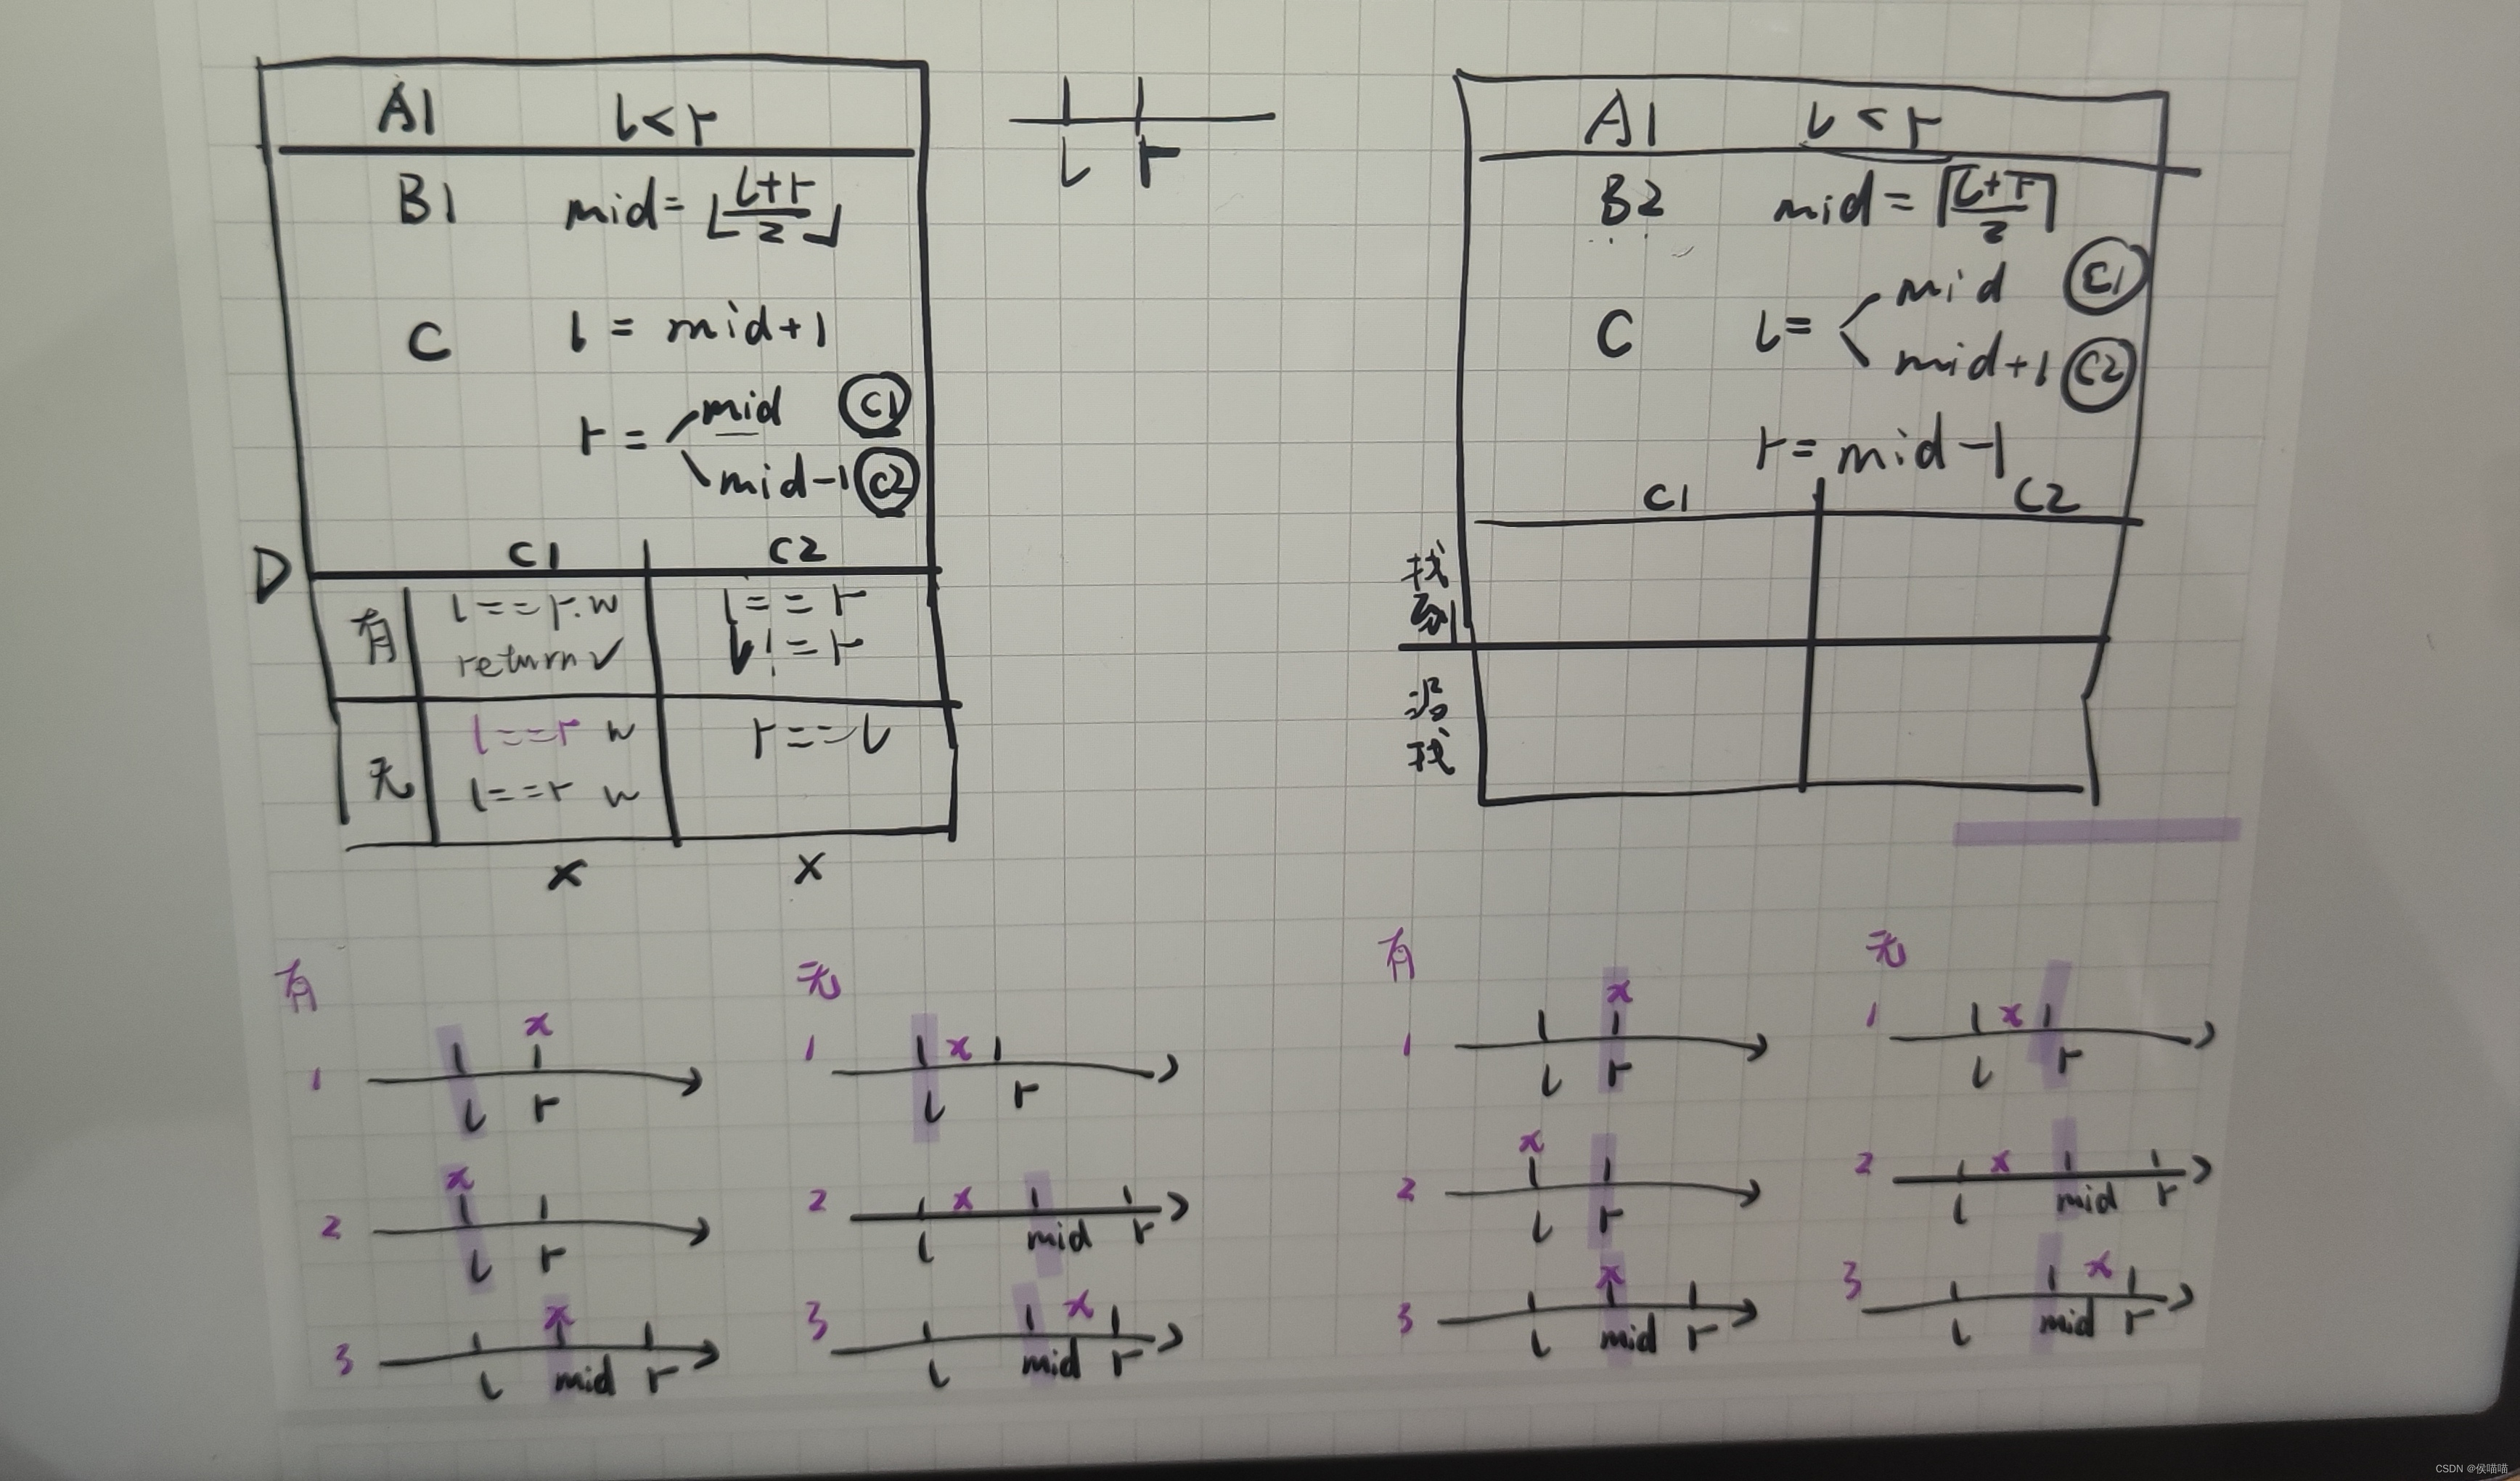 A1 l<r
B1 mid=⌊(l+r)/2⌋
C l = mid+1
r = mid C1
mid-1 C2
D C1 C2
有 l==r.w l==r
return✓ l!=r
无 l==r w r==l
l==r w
x x
l r
A1 l<r
B2 mid=⌈(l+r)/2⌉
C l= mid C1
mid+1 C2
r=mid-1
C1 C2
找
到
没
找
有
1 x
l r
2 x
l r
3 x
l mid r
无
1 x
l r
2 x
l mid r
3 x
l mid r
有
1 x
l r
2 x
l r
3 x
l mid r
无
1 x
l r
2 x
l mid r
3 x
l mid r
CSDN @侯喵喵